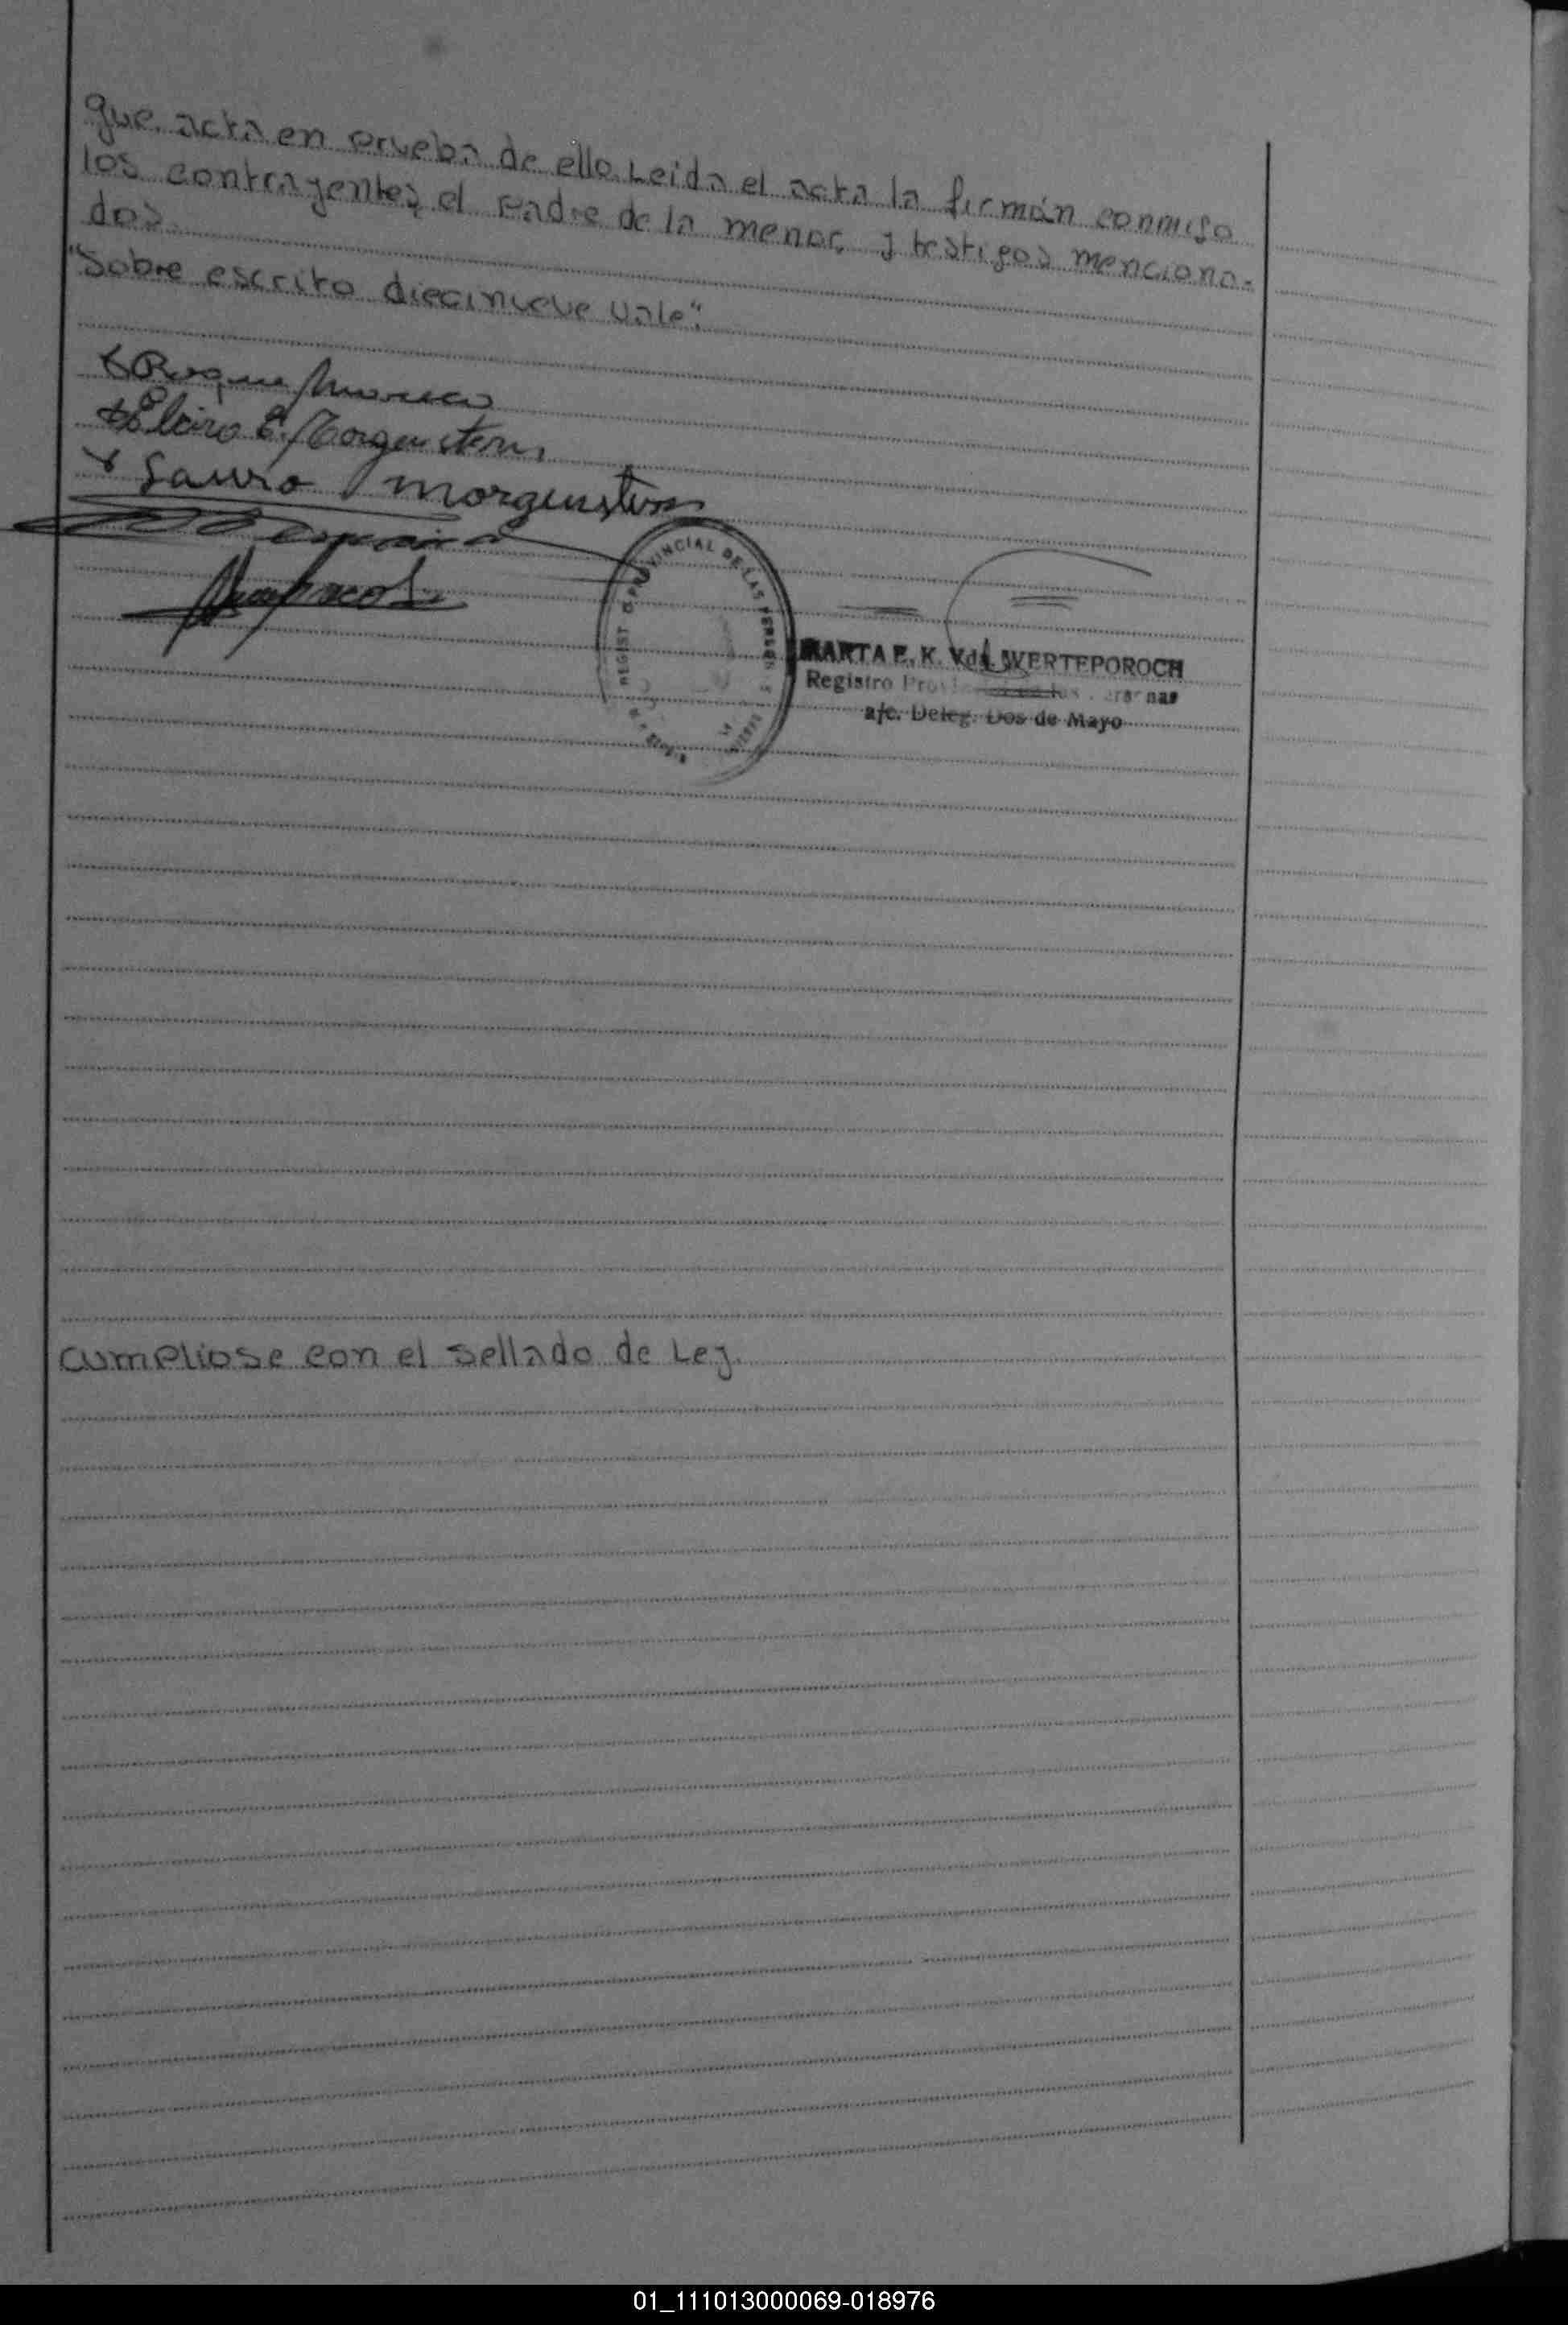 que. acta en prueba de ello. Leida el acta la firmán conmigo
los contrayentes, el Padre de la menor, y testigos menciona-
dos.
"Sobre escrito diecinueve vale".
Roque
Elvira E. Morgenstern
Lauro Morgenstern
REGISTRO PROVINCIAL DE LAS PERSONAS
MARTA E. K. Vda. WERTEPOROCH
Registro Provincial de las Personas
a/c. Deleg. Dos de Mayo
cumpliose con el sellado de Ley.
01_111013000069-018976